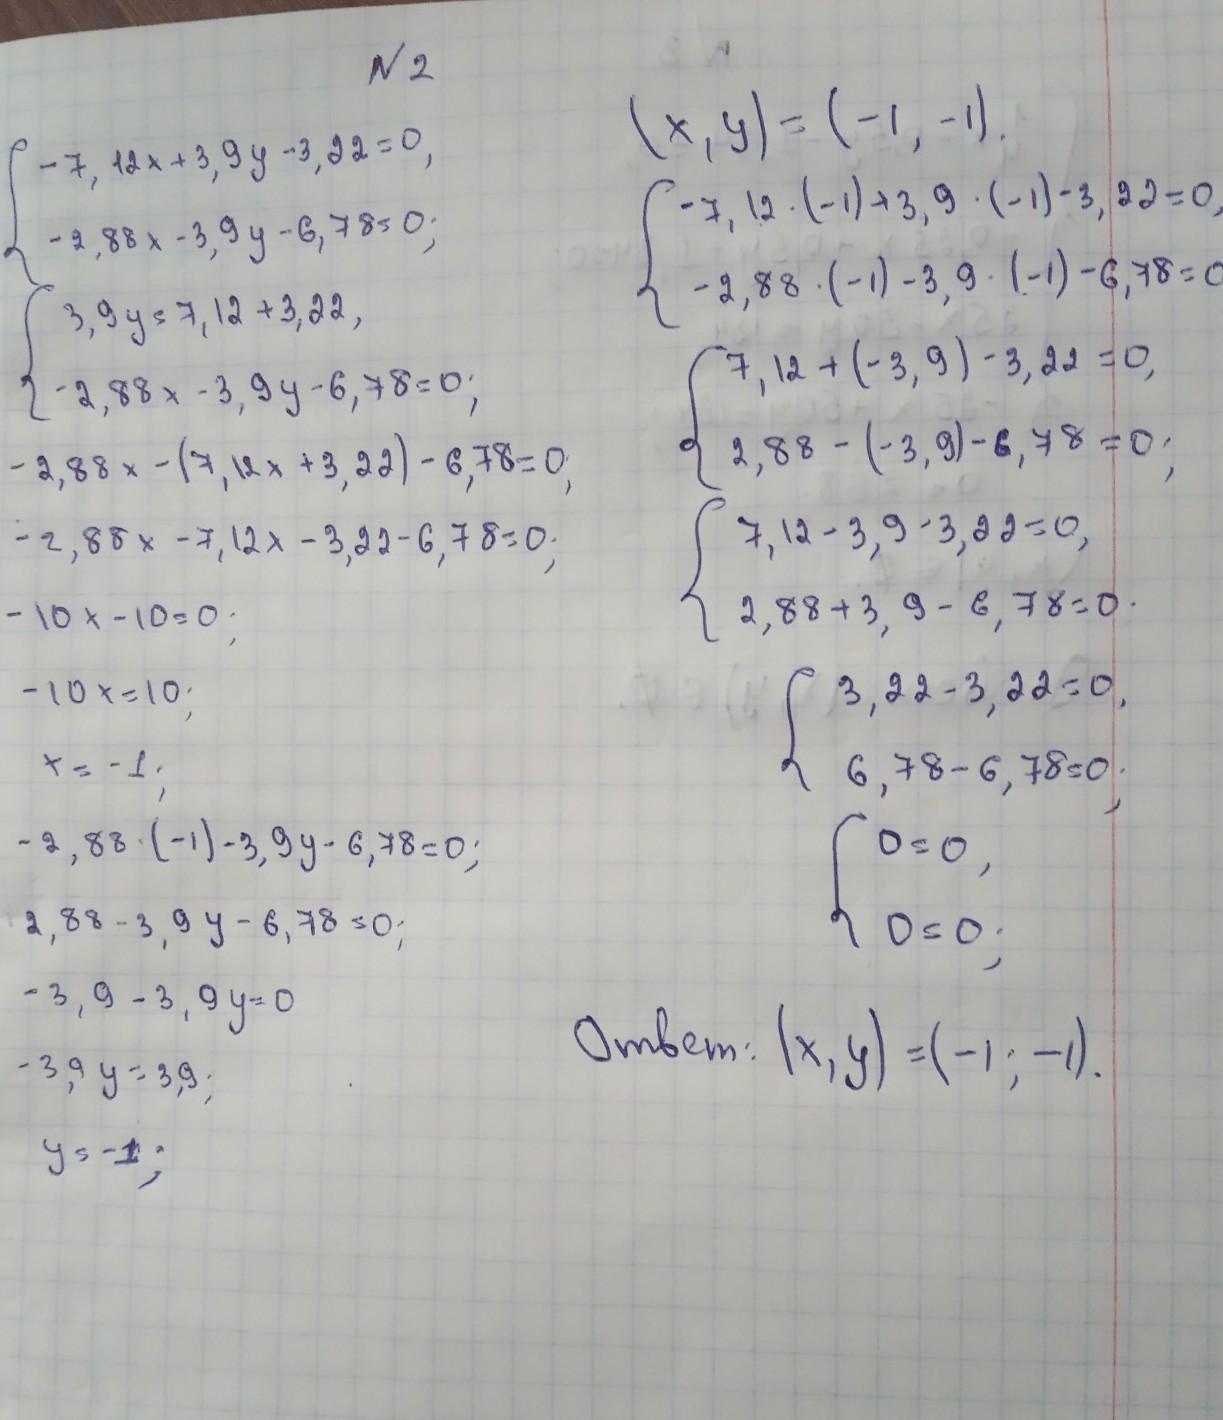 N 2
-7,12x+3,9y-3,22=0,
-2,88x-3,9y-6,78=0;
3,9y=7,12+3,22,
-2,88x-3,9y-6,78=0;
-2,88x-(7,12x+3,22)-6,78=0;
-2,88x-7,12x-3,22-6,78=0;
-10x-10=0;
-10x=10;
x=-1;
-2,88·(-1)-3,9y-6,78=0;
2,88-3,9y-6,78=0;
-3,9-3,9y=0
-3,9y=3,9;
y=-1;
(x,y)=(-1,-1).
-7,12·(-1)+3,9·(-1)-3,22=0,
-2,88·(-1)-3,9·(-1)-6,78=0
7,12+(-3,9)-3,22=0,
2,88-(-3,9)-6,78=0;
7,12-3,9-3,22=0,
2,88+3,9-6,78=0.
3,22-3,22=0,
6,78-6,78=0;
0=0,
0=0;
Ответ: (x,y)=(-1;-1).